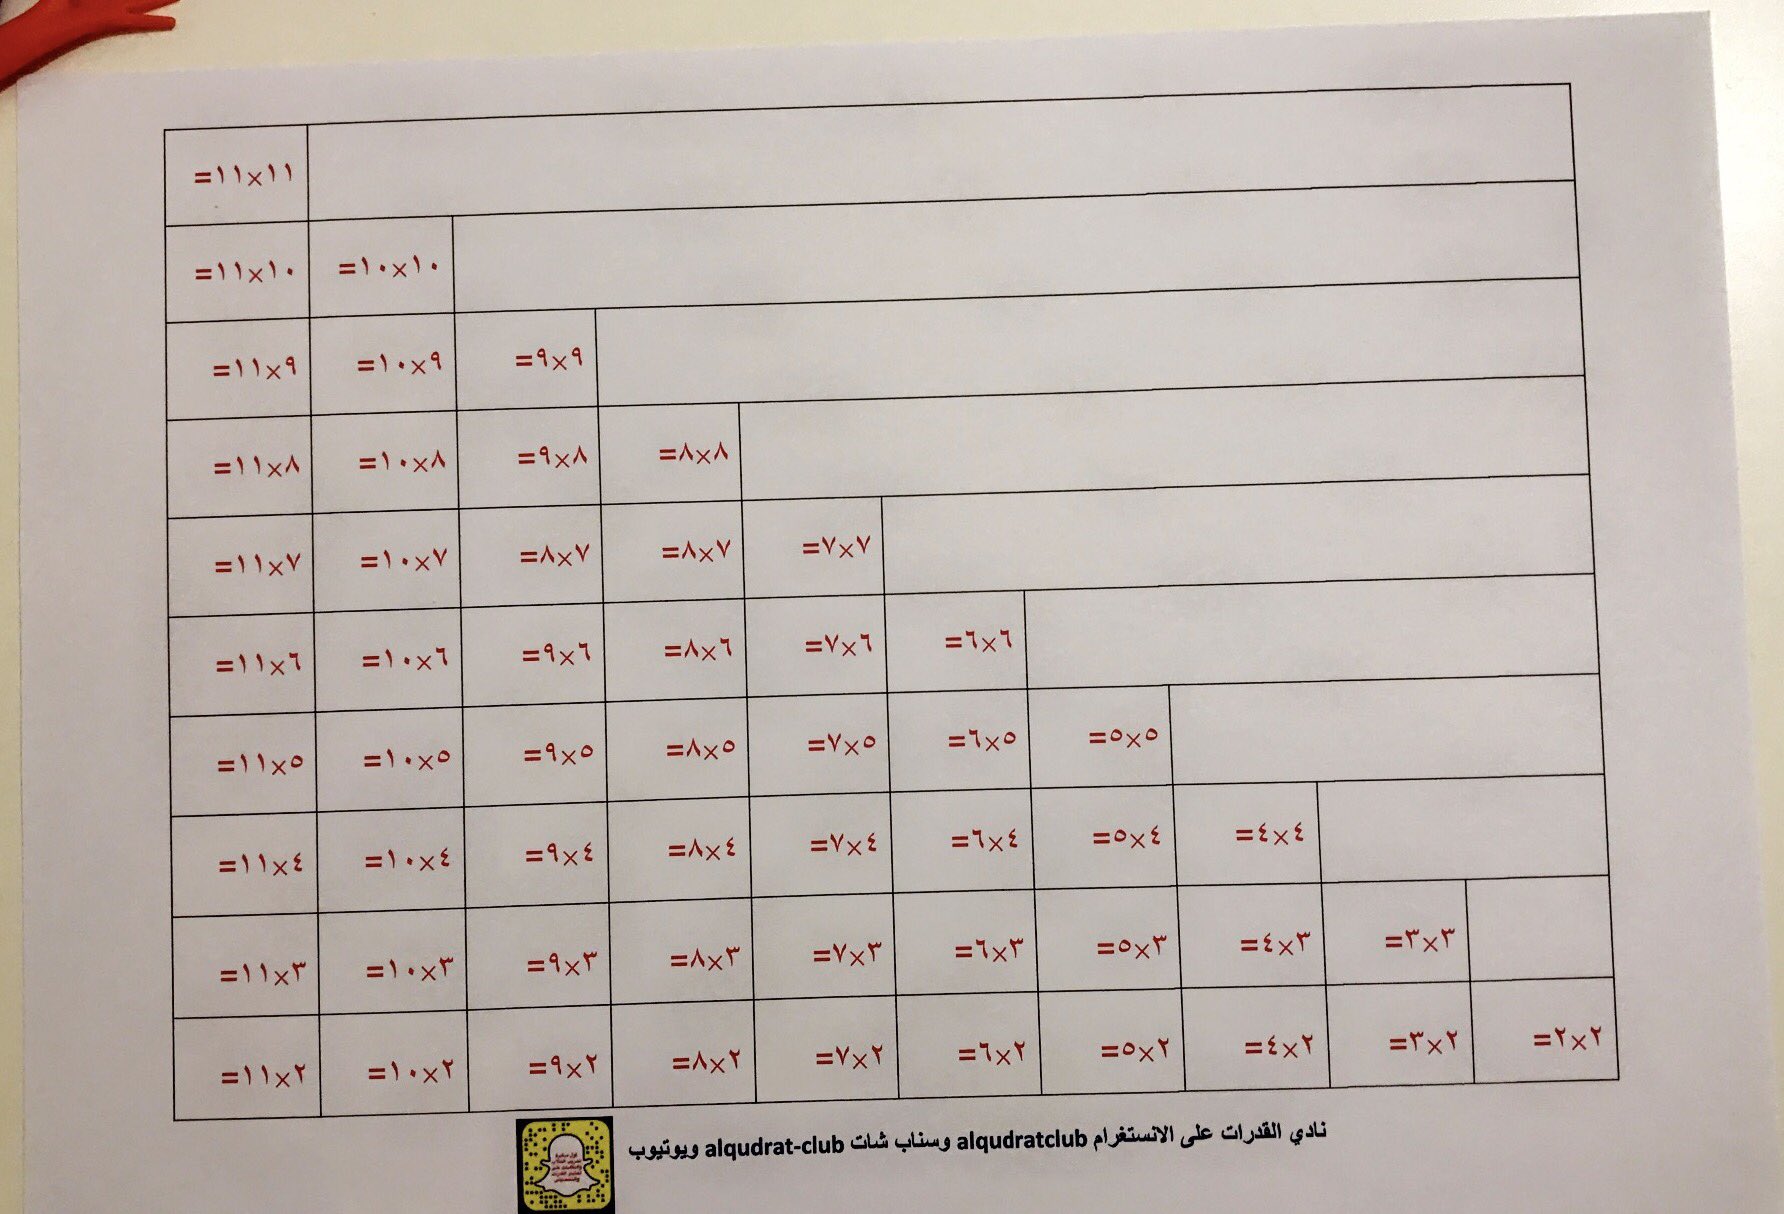 ١١×١١=
١٠×١٠= ١٠×١١=
٩×٩= ٩×١٠= ٩×١١=
٨×٨= ٨×٩= ٨×١٠= ٨×١١=
٧×٧= ٧×٨= ٧×٨= ٧×١٠= ٧×١١=
٦×٦= ٦×٧= ٦×٨= ٦×٩= ٦×١٠= ٦×١١=
٥×٥= ٥×٦= ٥×٧= ٥×٨= ٥×٩= ٥×١٠= ٥×١١=
٤×٤= ٤×٥= ٤×٦= ٤×٧= ٤×٨= ٤×٩= ٤×١٠= ٤×١١=
٣×٣= ٣×٤= ٣×٥= ٣×٦= ٣×٧= ٣×٨= ٣×٩= ٣×١٠= ٣×١١=
٢×٢= ٢×٣= ٢×٤= ٢×٥= ٢×٦= ٢×٧= ٢×٨= ٢×٩= ٢×١٠= ٢×١١=
نادي القدرات على الانستغرام alqudratclub وسناب شات alqudrat-club ويوتيوب